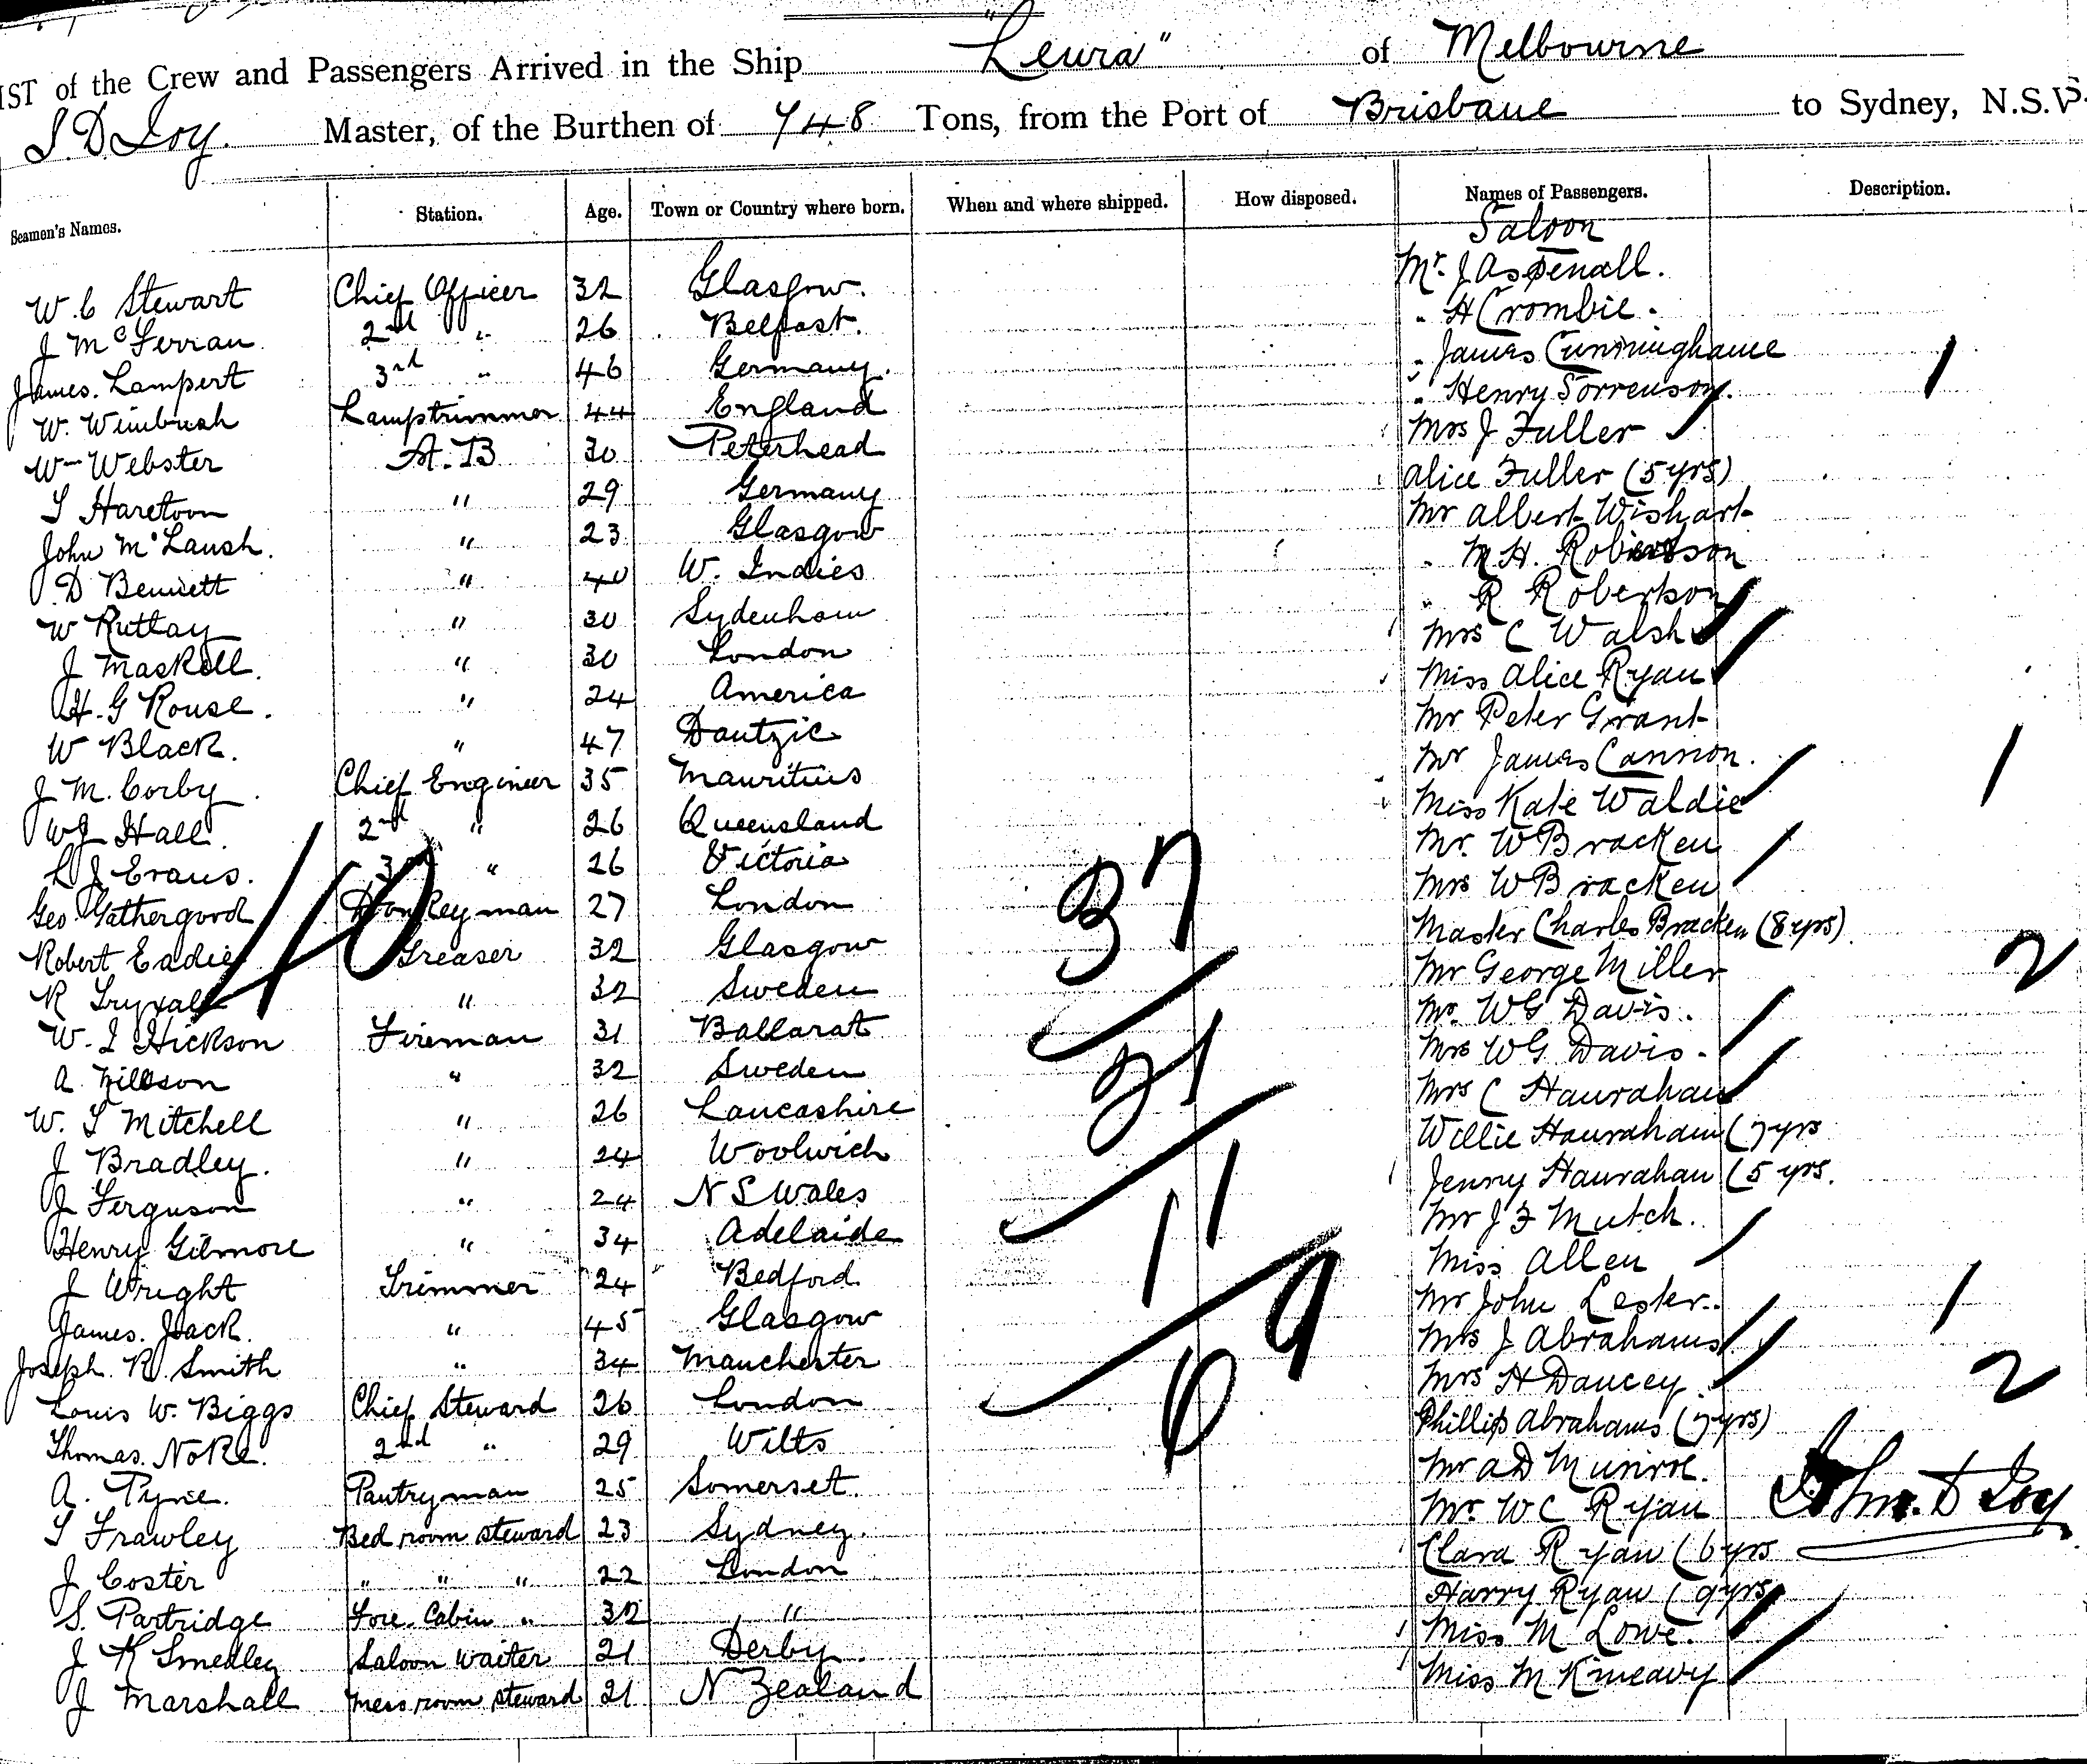 LIST of the Crew and Passengers Arrived in the Ship "Leura" of Melbourne
J. D Joy. Master, of the Burthen of 748 Tons, from the Port of Brisbane to Sydney, N.S.W.
Seamen's Names. Station. Age. Town or Country where born. When and where shipped. How disposed. Names of Passengers. Description.
Saloon
W. C Stewart Chief Officer 32 Glasgow. Mr. J Aspenall.
J McFerran 2nd " 26 Belfast. " H Crombie.
James. Lampert 3rd " 46 Germany. " James Cunninghame 1
W. Wimbush Lamptrimmer 44 England " Henry Sorrenson.
Wm Webster A.B 30 Peterhead Mrs J Fuller
Haretoon " 29 Germany Alice Fuller (5 yrs)
John " 23 Glasgow Mr Albert Wishart
D Bennett " 40 W. Indies " M H. Robertson
W Ruttay " 30 Sydenham " R Robertson
J Maskell. " 30 London Mrs C Walsh
H. G Rouse. " 24 America Miss Alice Ryan
W Black. " 47 Dantzic Mr Peter Grant
J. M. Corby. Chief Engineer 35 Mauritius Mr James Cannon. 1
W J Hall. 2nd " 26 Queensland Miss Kate Waldie
L J Evans. 3rd " 26 Victoria Mr. W Bracken
Geo Gathergood Donkeyman 27 London Mrs W Bracken
Robert Eadie Greaser 32 Glasgow Master Charles Bracken (8 yrs)
R " 32 Sweden Mr George Miller 2
W. J Hickson Fireman 31 Ballarat Mr. W G Davis.
A. Nillson " 32 Sweden Mrs W G Davis.
W. T Mitchell " 26 Lancashire Mrs C Hanrahan
J Bradley. " 24 Woolwich Willie Hanrahan (7 yrs
J Ferguson " 24 N S Wales Jenny Hanrahan (5 yrs.
Henry Gilmore " 34 Adelaide Mr J F Mutch.
J Wright Trimmer 24 Bedford Miss Allen
James. Jack. " 45 Glasgow Mr John Lester. 1
Joseph. R. Smith " 34 Manchester Mrs J Abrahams
Louis W. Biggs Chief Steward 26 London Mrs H Dancey 2
Thomas. Noke. 2nd " 29 Wilts Phillip Abrahams (7 yrs)
A. Pyne. Pantryman 25 Somerset. Mr A D Munroe.
T Frawley Bed room steward 23 Sydney. Mr. W C Ryan John. D Joy
J Coster " " " 22 London Clara Ryan (6 yrs
S. Partridge Fore Cabin " 32 " Harry Ryan (9 yrs)
J K Smedley Saloon waiter 21 Derby. Miss M Lowe.
J Marshall Mess room steward 21 N Zealand Miss M Kineavy
40
37
21
11
69